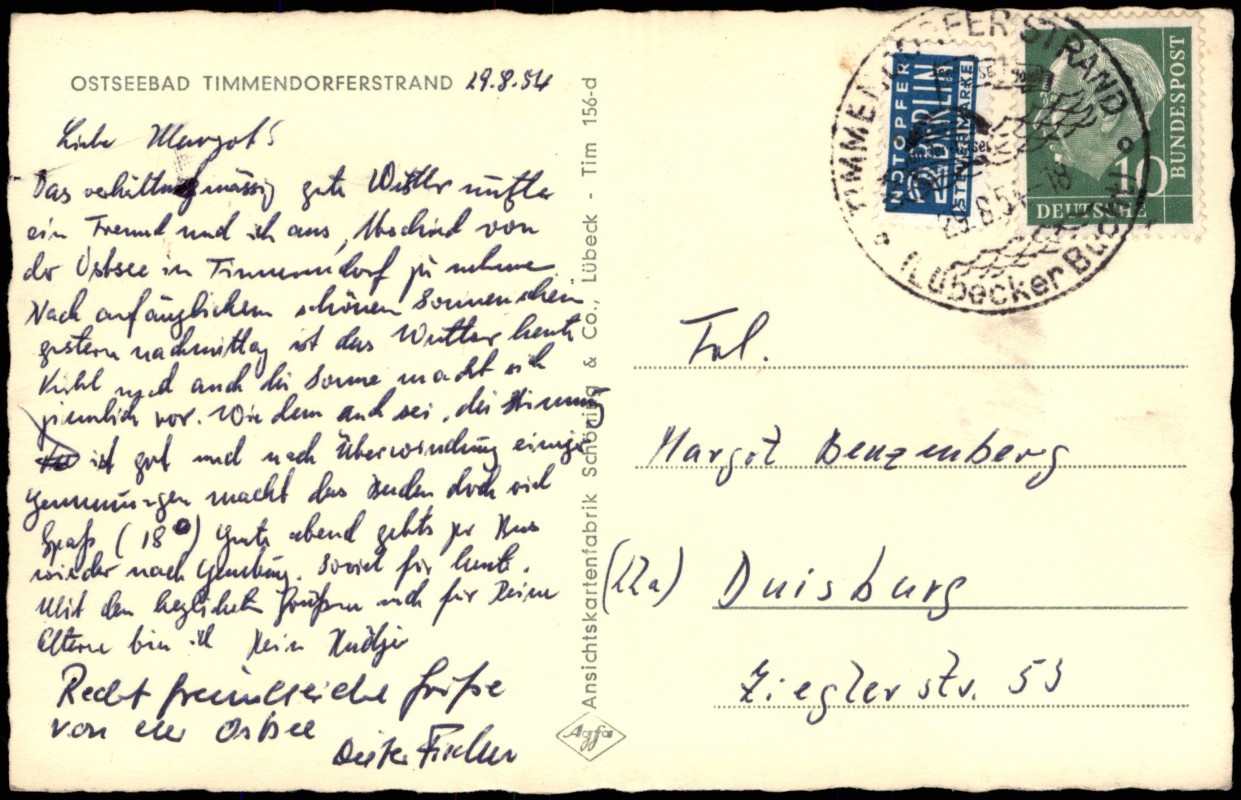 OSTSEEBAD TIMMENDORFERSTRAND 29.8.54
Liebe Margot!
Das verhältnismässig gute Wetter
ein Freund und ich aus, Abschied von
der Ostsee in Timmendorf zu nehmen.
Nach anfänglichem schönen Sonnenschein
gestern nachmittag ist das Wetter heute
kühl und auch die Sonne macht sich
ziemlich rar. Wie dem auch sei, die Stimmung
ist gut und nach Überwindung einiger
Hemmungen macht das Baden doch viel
Spaß (18°) Heute abend gehts per Bus
wieder nach Hamburg. Soviel für heute.
Mit den herzlichsten Grüßen auch für Deine
Eltern bin ich Dein Rüdiger
Recht freundliche Grüße
von der Ostsee
Dieter Fischer
Ansichtskartenfabrik Schöning & Co., Lübeck - Tim 156-d
Agfa
NOTOPFER
2 BERLIN
STEUERMARKE
DEUTSCHE
BUNDESPOST
10
TIMMENDORFER STRAND
29.8.54-18
(Lübecker Bucht)
Frl.
Margot Benzenberg
(22a) Duisburg
Zieglerstr. 53